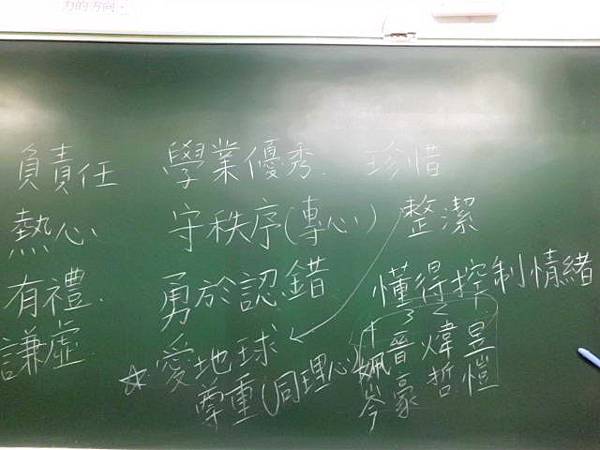 力的方向:
負責任 學業優秀. 珍惜
熱心 守秩序(專心) 整潔
有禮. 勇於認錯 懂得控制情緒
謙虛. ☆愛地球
尊重(同理心)
4 3 2 1
姵晉煒昱
岑豪哲愷